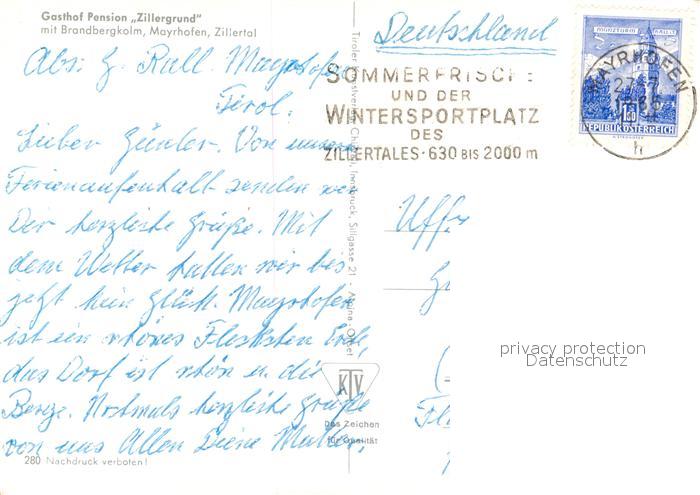 Gasthof Pension „Zillergrund"
mit Brandbergkolm, Mayrhofen, Zillertal
Deutschland
Abs: G. Rall Mayrhofen
Tirol.
SOMMERFRISCHE
UND DER
WINTERSPORTPLATZ
DES
ZILLERTALES · 630 BIS 2000 m
MAYRHOFEN
h
MÜNZTURM HALL
REPUBLIK ÖSTERREICH
Lieber Günter. Von unserem
Ferienaufenthalt senden wir
Dir herzliche Grüße. Mit
dem Wetter hatten wir bis
jetzt kein Glück. Mayrhofen
ist ein schönes Fleckchen Erde,
das Dorf ist schön u. die
Berge. Nochmals herzliche Grüße
von uns Allen Deine Mutter.
Tiroler Kunstverlag Chizzali, Innsbruck, Sillgasse 21 - Alpina-Offset
Uffz
KTV
Das Zeichen
für Qualität
280 Nachdruck verboten!
privacy protection
Datenschutz